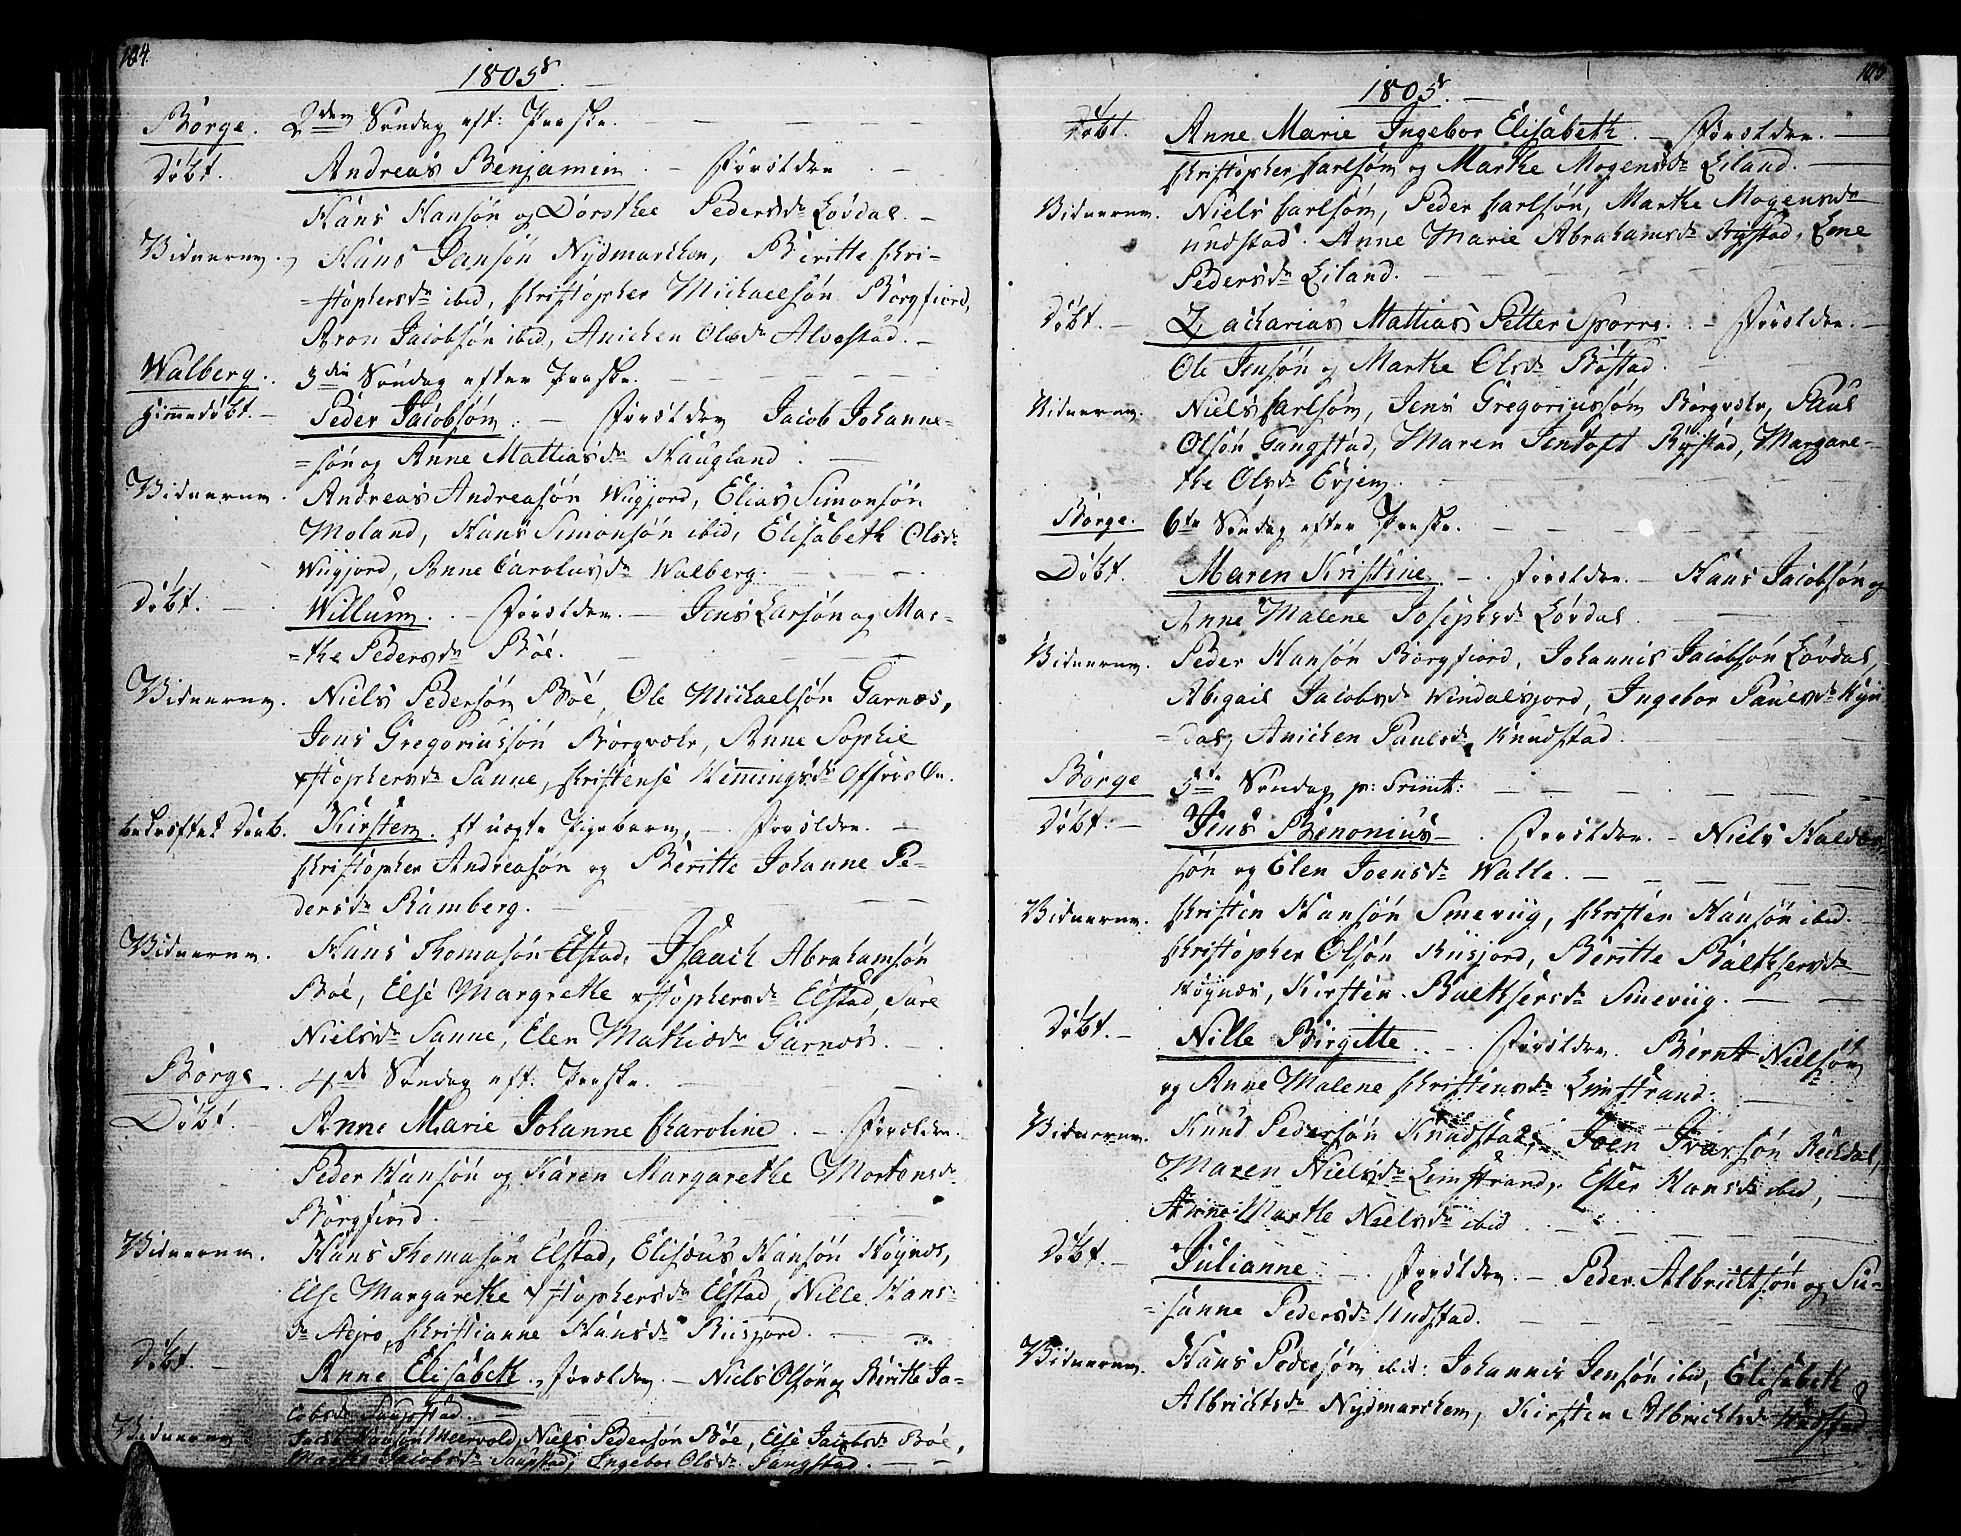 104.
1805
Borge. 2den Søndag eft: Paaske.
Døbt. Andreas Benjamin. - Forældre
Hans Hansøn og Dorothee Pedersdr Løvdal.
Vidnerne. Hans Jansøn Nydmarcken, Beritte Chri-
=stophersdr ibid, Christopher Michaelsøn Borgfiord,
Aron Jacobsøn ibid, Anicken Olsdr Alvestad.
Walberg. 3die Søndag efter Paaske.
Himedøbt. Peder Jacobsøn. - Forældre Jacob Johanne-
=søn og Anne Mattiasdr Haugland.
Vidnerne. Andreas Andreasøn Wiigjord, Elias Simonsøn
Moland, Hans Simonsøn ibid, Elisabeth Olsdr
Wiigjord, Anne Carolusdr Walberg.
Døbt. Willum. - Forældre. - Jens Larsøn og Mar-
=the Pedersdr Böe.
Vidnerne. Niels Pedersøn Böe, Ole Michaelsøn Garnæs,
Jens Gregoriussøn Borgvær, Anne Sophie
Xstophersdr Sanne, Christense Hemmingsdr Offersøe.
bekræftet Daab. Kirsten. Et uægte Pigebarn, - Forældre. -
Christopher Andreasøn og Beritte Johanne Pe-
dersdr Ramberg.
Vidnerne. Hans Thomasøn Elstad, Isaach Abrahamsøn
Böe, Else Margrethe Xstophersdr Elstad, Sare
Nielsdr Sanne, Elen Mathiædr Garnæs.
Borge. 4de Søndag eft: Paaske.
Døbt. Anne Marie Johanne Charoline. - Forældre.
Peder Hansøn og Karen Margarethe Mortensdr
Borgfiord.
Vidnerne. Hans Thomasøn Elstad, Elisæus Hansøn Høynæs,
Else Margarethe Xstophersdr Elstad, Nille Hans-
dr, Christianne Hansdr Riisjord.
Døbt. Anne Elisabeth. Forældre. - Niels Olsøn og Beritte Ja-
cobsdr Saupstad.
Vidnerne Jacob Hansøn, Niels Pedersøn Böe, Else Jacobsdr Böe,
Marthe Jacobsdr Saupstad, Ingebor Olsdr Tangstad.
105
1805
Døbt. Anne Marie Ingebor Elisabeth. - Forældre.
Christopher Carlsøn og Marthe Mogensdr Eiland.
Vidnerne. Niels Carlsøn, Peder Carlsøn, Marthe Mogensdr
Undstad. Anne Marie Abrahamsdr Bøstad, Lene
Pedersdr Eiland.
Døbt. Zacharias Mattias Petter Sporre. - Forældre. -
Ole Jensøn og Marthe Olsdr Bøstad.
Vidnerne. Niels Carlsøn, Jens Gregoriussøn Borgvær, Paul
Olsøn Tangstad, Maren Jentoft Bøstad, Margare-
the Olsdr Evjen.
Borge. 6te Søndag efter Paaske.
Døbt. Maren Kristine. - Forældre. - Hans Jacobsøn og
Anne Malene Josephsdr Løvdal.
Vidnerne. Peder Hansøn Borgfiord, Johannis Jacobsøn Løvdal,
Abigail Jacobsdr Windalsjord, Ingebor Paulsdr
=dal, Anichen Paulsdr Knudstad.
Borge 5te Søndag p: Trinit:
Døbt. Jens Benonius. Forældre. - Niels Halds-
søn og Elen Joensdr Walle.
Vidnerne. Christen Hansøn Smeviig, Christen Hansøn ibid.
Christopher Olsøn Riisjord, Beritte Balthsersdr
Høynæs, Kirsten Balthsersdr Smeviig.
Døbt. Nille Birgitte. - Forældre. Bernt Nielsøn
og Anne Malene Christensdr Limstrand.
Vidnerne. Knud Pedersøn Knudstad, Joen Ivarsøn Rechdal,
Maren Nielsdr Limstrand, Ester Hansdr ibid,
Anne Marthe Nielsdr ibid.
Døbt. Julianne. - Forældre. - Peder Albrichtsøn og Su-
=sanne Pedersdr Undstad.
Vidnerne. Hans Pedersøn ibid: Johannis Jensøn ibid, Elisabeth
Albrichtsdr Nydmarchen, Kirsten Albrichtsdr Undstad.